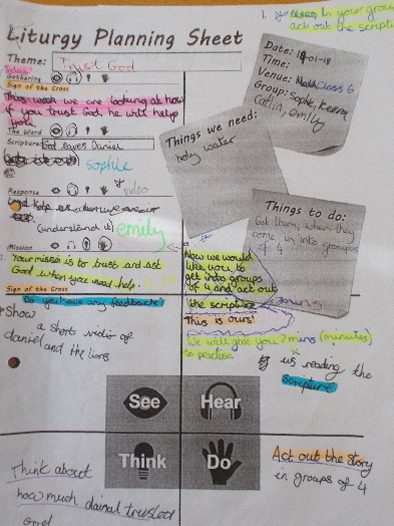 1.
In your group
act out the scripture
Liturgy Planning Sheet
Theme: Trust God
Gathering
Sign of the Cross
This week we are looking at how
if you trust God, he will help
you.
The Word
Scripture: God saves Daniel
Sophie
Response
video
(understand it)
emily
Mission
Your misson is to trust and ask
God when you need help.
Sign of the Cross
Do you have any feedback?
Date: 19-01-18
Time:
Venue: Class 6
Group: Sophie, Keeva,
Catlin, emily
Things we need:
holy water
Things to do:
Get them, when they
come in into groups
of 4
Now we would
like you to
get into groups
of 4 and act out
the scripture
This is ours!
We will give you 7 mins (minutes)
to practise
Show
a short video of
daniel and the lions
us reading the
Scripture
See
Hear
Think
Do
Think about
how much dainal trusted
God
Act out the story
in groups of 4